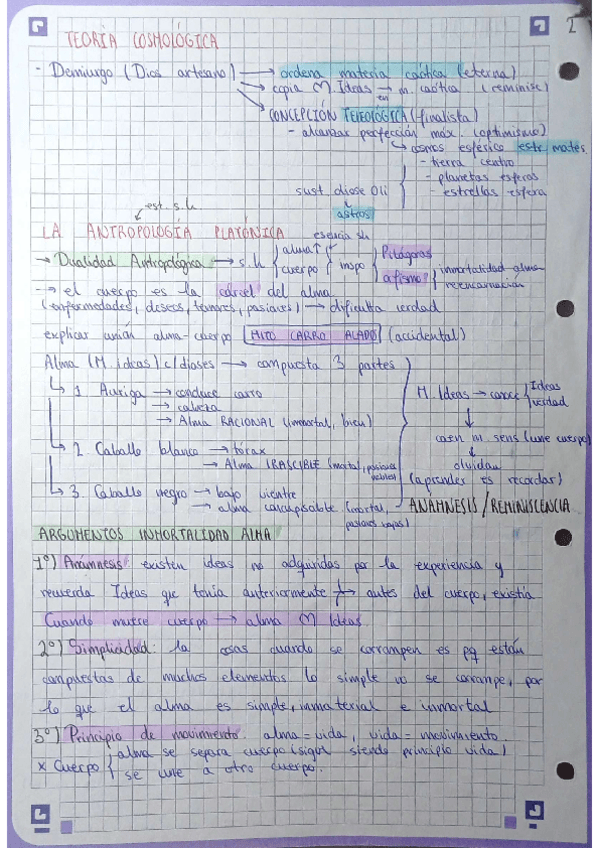 2
TEORÍA COSMOLÓGICA
- Demiurgo (Dios artesano) → ordena materia caótica (eterna)
→ copia M. Ideas → en m. caótica (reminisc)
→ CONCEPCIÓN TELEOLÓGICA (finalista)
- alcanzar perfección máx. (optimismo)
↳ cosmos esférico estr. matés.
- tierra centro
- planetas esferas
- estrellas esfera
sust. diose
↓
astros
est. s.h
LA ANTROPOLOGÍA PLATÓNICA
esencia sh
→ Dualidad Antropológica → s.h { alma↑ cuerpo { inspo { Pitágoras
orfismo? { inmortalidad alma
reencarnación
→ el cuerpo es la cárcel del alma
(enfermedades, deseos, temores, pasiones) → dificulta verdad
explicar unión alma-cuerpo MITO CARRO ALADO (accidental)
Alma (M. ideas) c/dioses → compuesta 3 partes
↳ 1. Auriga → conduce carro
→ cabeza
→ Alma RACIONAL (inmortal, bien)
M. Ideas → conoce { Ideas
verdad
↓
caen m. sens (une cuerpo)
↓
olvidan
(aprender es recordar)
↳ 2. Caballo blanco → tórax
→ Alma IRASCIBLE (mortal, pasiones nobles)
↳ 3. Caballo negro → bajo vientre
→ alma concupisable (mortal, pasiones bajas)
- ANAMNESIS / REMINISCENCIA
ARGUMENTOS INMORTALIDAD ALMA
1º) Anámnesis: existen ideas no adquiridas por la experiencia y
recuerda Ideas que tenía anteriormente → antes del cuerpo, existía
Cuando muere cuerpo → alma M Ideas
2º) Simplicidad: la cosas cuando se corrompen es pq están
compuestas de muchos elementos lo simple no se corrompe, por
lo que el alma es simple, inmaterial e inmortal
3º) Principio de movimiento. alma = vida, vida = movimiento.
x Cuerpo { alma se separa cuerpo (sigue siendo principio vida)
se une a otro cuerpo.